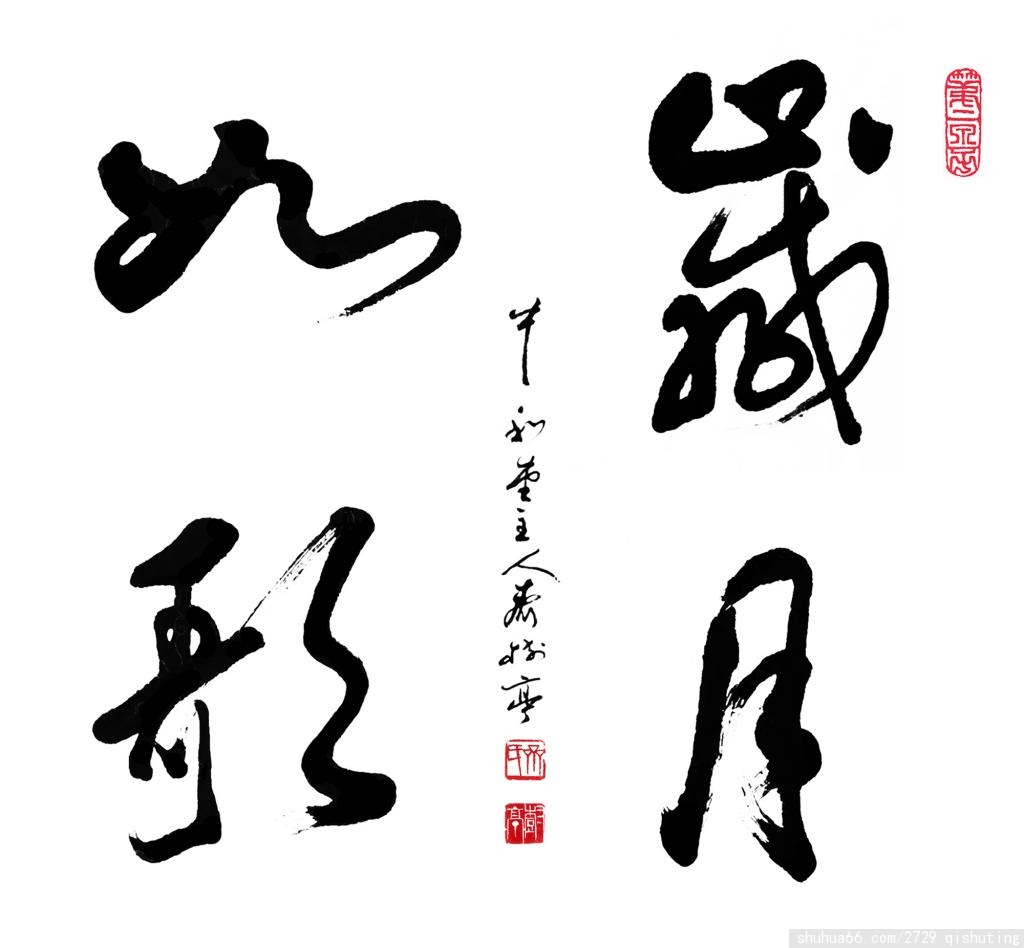 歲月
如歌
和堂主人齊樹亭
shuhua66.com/2729 qishuting